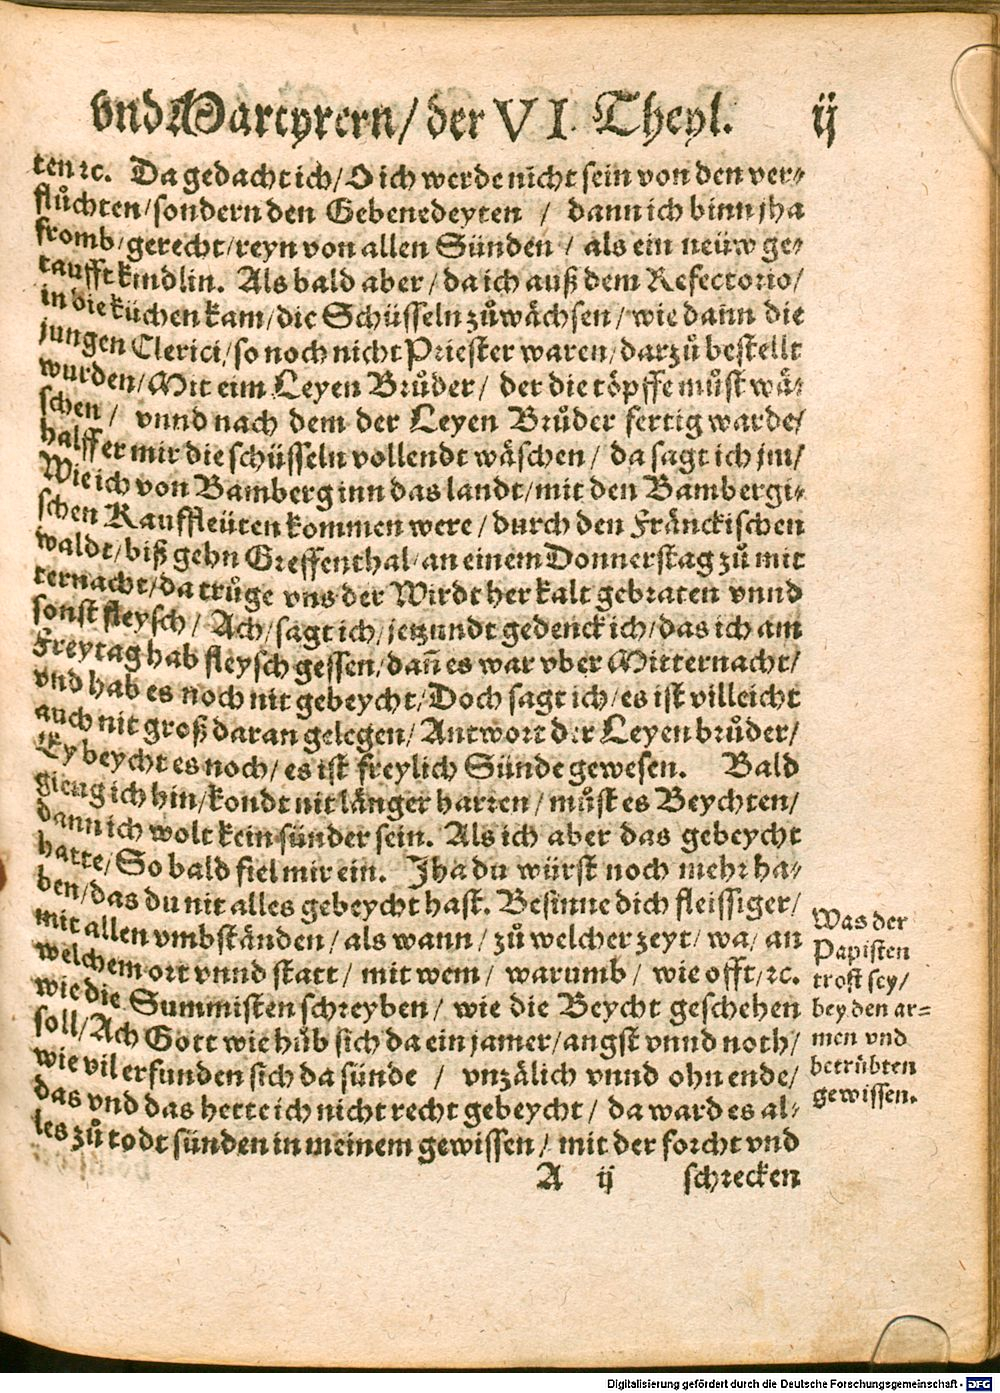 vnd Martyrern/ der VI. Theyl. ij
ten ꝛc. Da gedacht ich/ O ich werde nicht sein von den ver⸗
flůchten/ sondern den Gebenedeyten / dann ich binn jha
fromb/ gerecht/ reyn von allen Sünden / als ein neüw ge⸗
taufft kindlin. Als bald aber/ da ich auß dem Refectorio/
in die küchen kam/ die Schüsseln zůwäschen/ wie dann die
jungen Clerici/ so noch nicht Priester waren/ darzů bestellt
wurden/ Mit eim Leyen Brůder/ der die töpffe můst wä⸗
schen / vnnd nach dem der Leyen Brůder fertig warde/
halff er mir die schüsseln vollendt wäschen / da sagt ich jm/
Wie ich von Bamberg inn das landt/ mit den Bambergi⸗
schen Kauffleüten kommen were / durch den Fränckischen
waldt/ biß gehn Greffenthal/ an einem Donnerstag zů mit
ternacht/ da trůge vns der Wirdt her kalt gebraten vnnd
sonst fleysch / Ach/ sagt ich/ jetzundt gedenck ich/ das ich am
Freytag hab fleysch gessen/ dañ es war vber Mitternacht/
vnd hab es noch nit gebeycht/ Doch sagt ich/ es ist villeicht
auch nit groß daran gelegen/ Antwort der Leyen brůder/
Ey beycht es noch/ es ist freylich Sünde gewesen. Bald
gieng ich hin/ kondt nit länger harren / můst es Beychten/
dann ich wolt kein sünder sein. Als ich aber das gebeycht
hatte/ So bald fiel mir ein. Jha du würst noch mehr ha⸗
ben/ das du nit alles gebeycht hast. Besinne dich fleissiger/
mit allen vmbständen/ als wann / zů welcher zeyt/ wa/ an
welchem ort vnnd statt/ mit wem/ warumb/ wie offt/ ꝛc.
wie die Summisten schreyben/ wie die Beycht geschehen
soll/ Ach Gott wie hůb sich da ein jamer/ angst vnnd noth/
wie vil erfunden sich da sünde / vnzälich vnnd ohn ende/
das vnd das hette ich nicht recht gebeycht / da ward es al⸗
les zů todt sünden in meinem gewissen / mit der forcht vnd
A ij schrecken
Was der
Papisten
trost sey/
bey den ar⸗
men vnd
betrübten
gewissen.
Digitalisierung gefördert durch die Deutsche Forschungsgemeinschaft - DFG